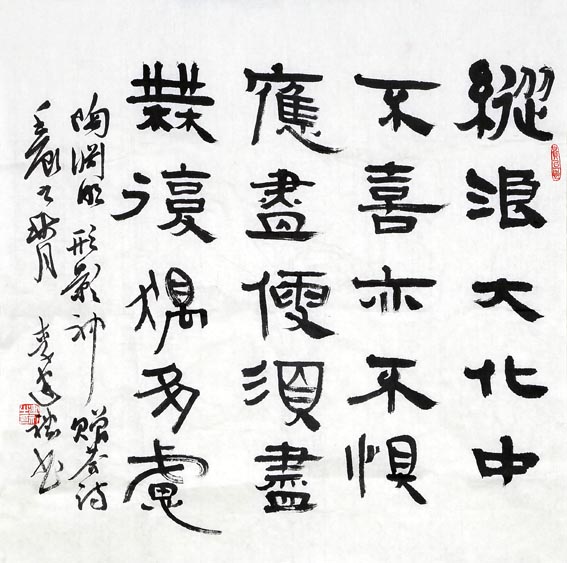 縱浪大化中
不喜亦不懼
應盡便須盡
無復獨多慮
陶淵明形影神贈答詩
壬辰 月 李 書